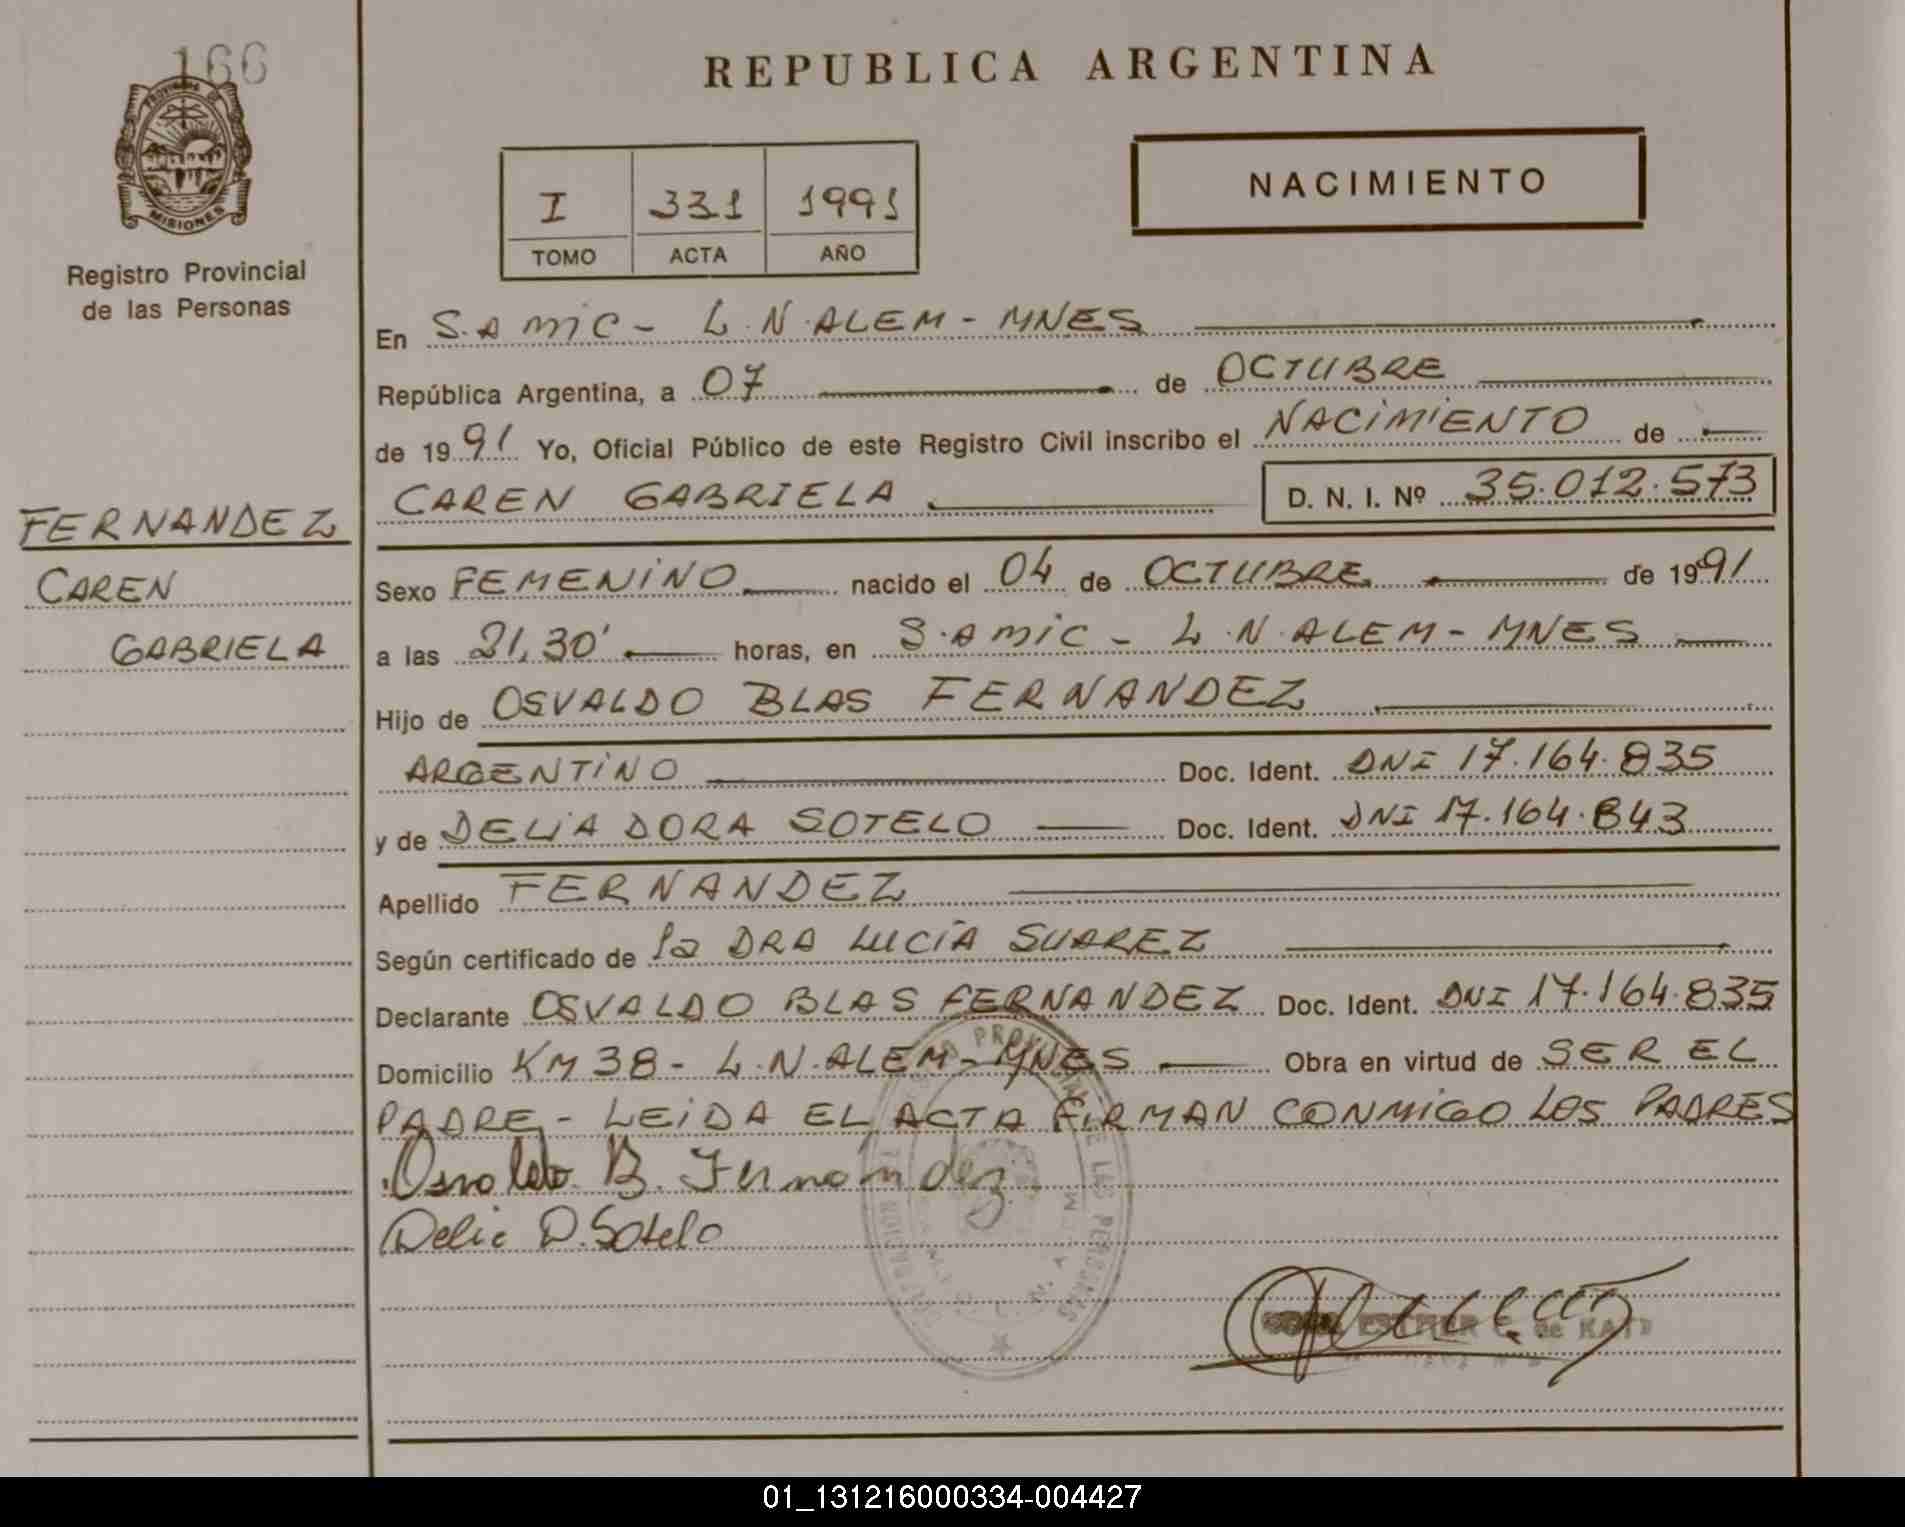 166
PROVINCIA DE
MISIONES
Registro Provincial
de las Personas
FERNANDEZ
CAREN
GABRIELA
REPUBLICA ARGENTINA
I 331 1991
TOMO ACTA AÑO
NACIMIENTO
En S.AMIC - L.N.ALEM - MNES
República Argentina, a 07 de OCTUBRE
de 1991 Yo, Oficial Público de este Registro Civil inscribo el NACIMIENTO de
CAREN GABRIELA D. N. I. Nº 35.012.573
Sexo FEMENINO nacido el 04 de OCTUBRE de 1991
a las 21,30' horas, en S.AMIC - L.N.ALEM - MNES
Hijo de OSVALDO BLAS FERNANDEZ
ARGENTINO Doc. Ident. DNI 17.164.835
y de DELIA DORA SOTELO Doc. Ident. DNI 17.164.843
Apellido FERNANDEZ
Según certificado de la DRA LUCIA SUAREZ
Declarante OSVALDO BLAS FERNANDEZ Doc. Ident. DNI 17.164.835
Domicilio KM 38 - L.N.ALEM - MNES Obra en virtud de SER EL
PADRE - LEIDA EL ACTA FIRMAN CONMIGO LOS PADRES
Osvaldo B. Fernández
Delia D. Sotelo
ESTHER de
01_131216000334-004427